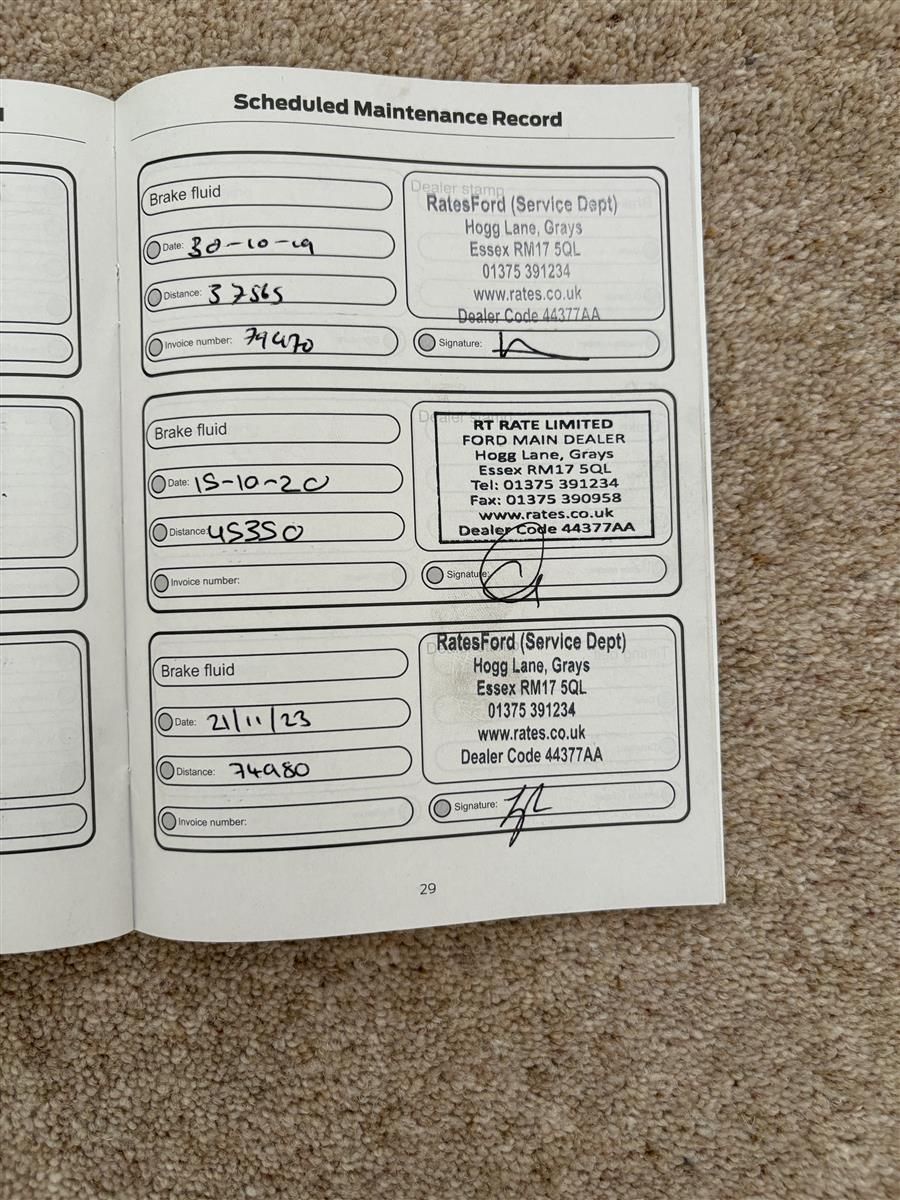 Scheduled Maintenance Record
Brake fluid
Date: 30-10-19
Distance: 37565
Invoice number: 79470
Dealer stamp
RatesFord (Service Dept)
Hogg Lane, Grays
Essex RM17 5QL
01375 391234
www.rates.co.uk
Dealer Code 44377AA
Signature:
Brake fluid
Date: 15-10-20
Distance: 45350
Invoice number:
Dealer stamp
RT RATE LIMITED
FORD MAIN DEALER
Hogg Lane, Grays
Essex RM17 5QL
Tel: 01375 391234
Fax: 01375 390958
www.rates.co.uk
Dealer Code 44377AA
Signature:
Brake fluid
Date: 21/11/23
Distance: 74980
Invoice number:
RatesFord (Service Dept)
Hogg Lane, Grays
Essex RM17 5QL
01375 391234
www.rates.co.uk
Dealer Code 44377AA
Signature:
29